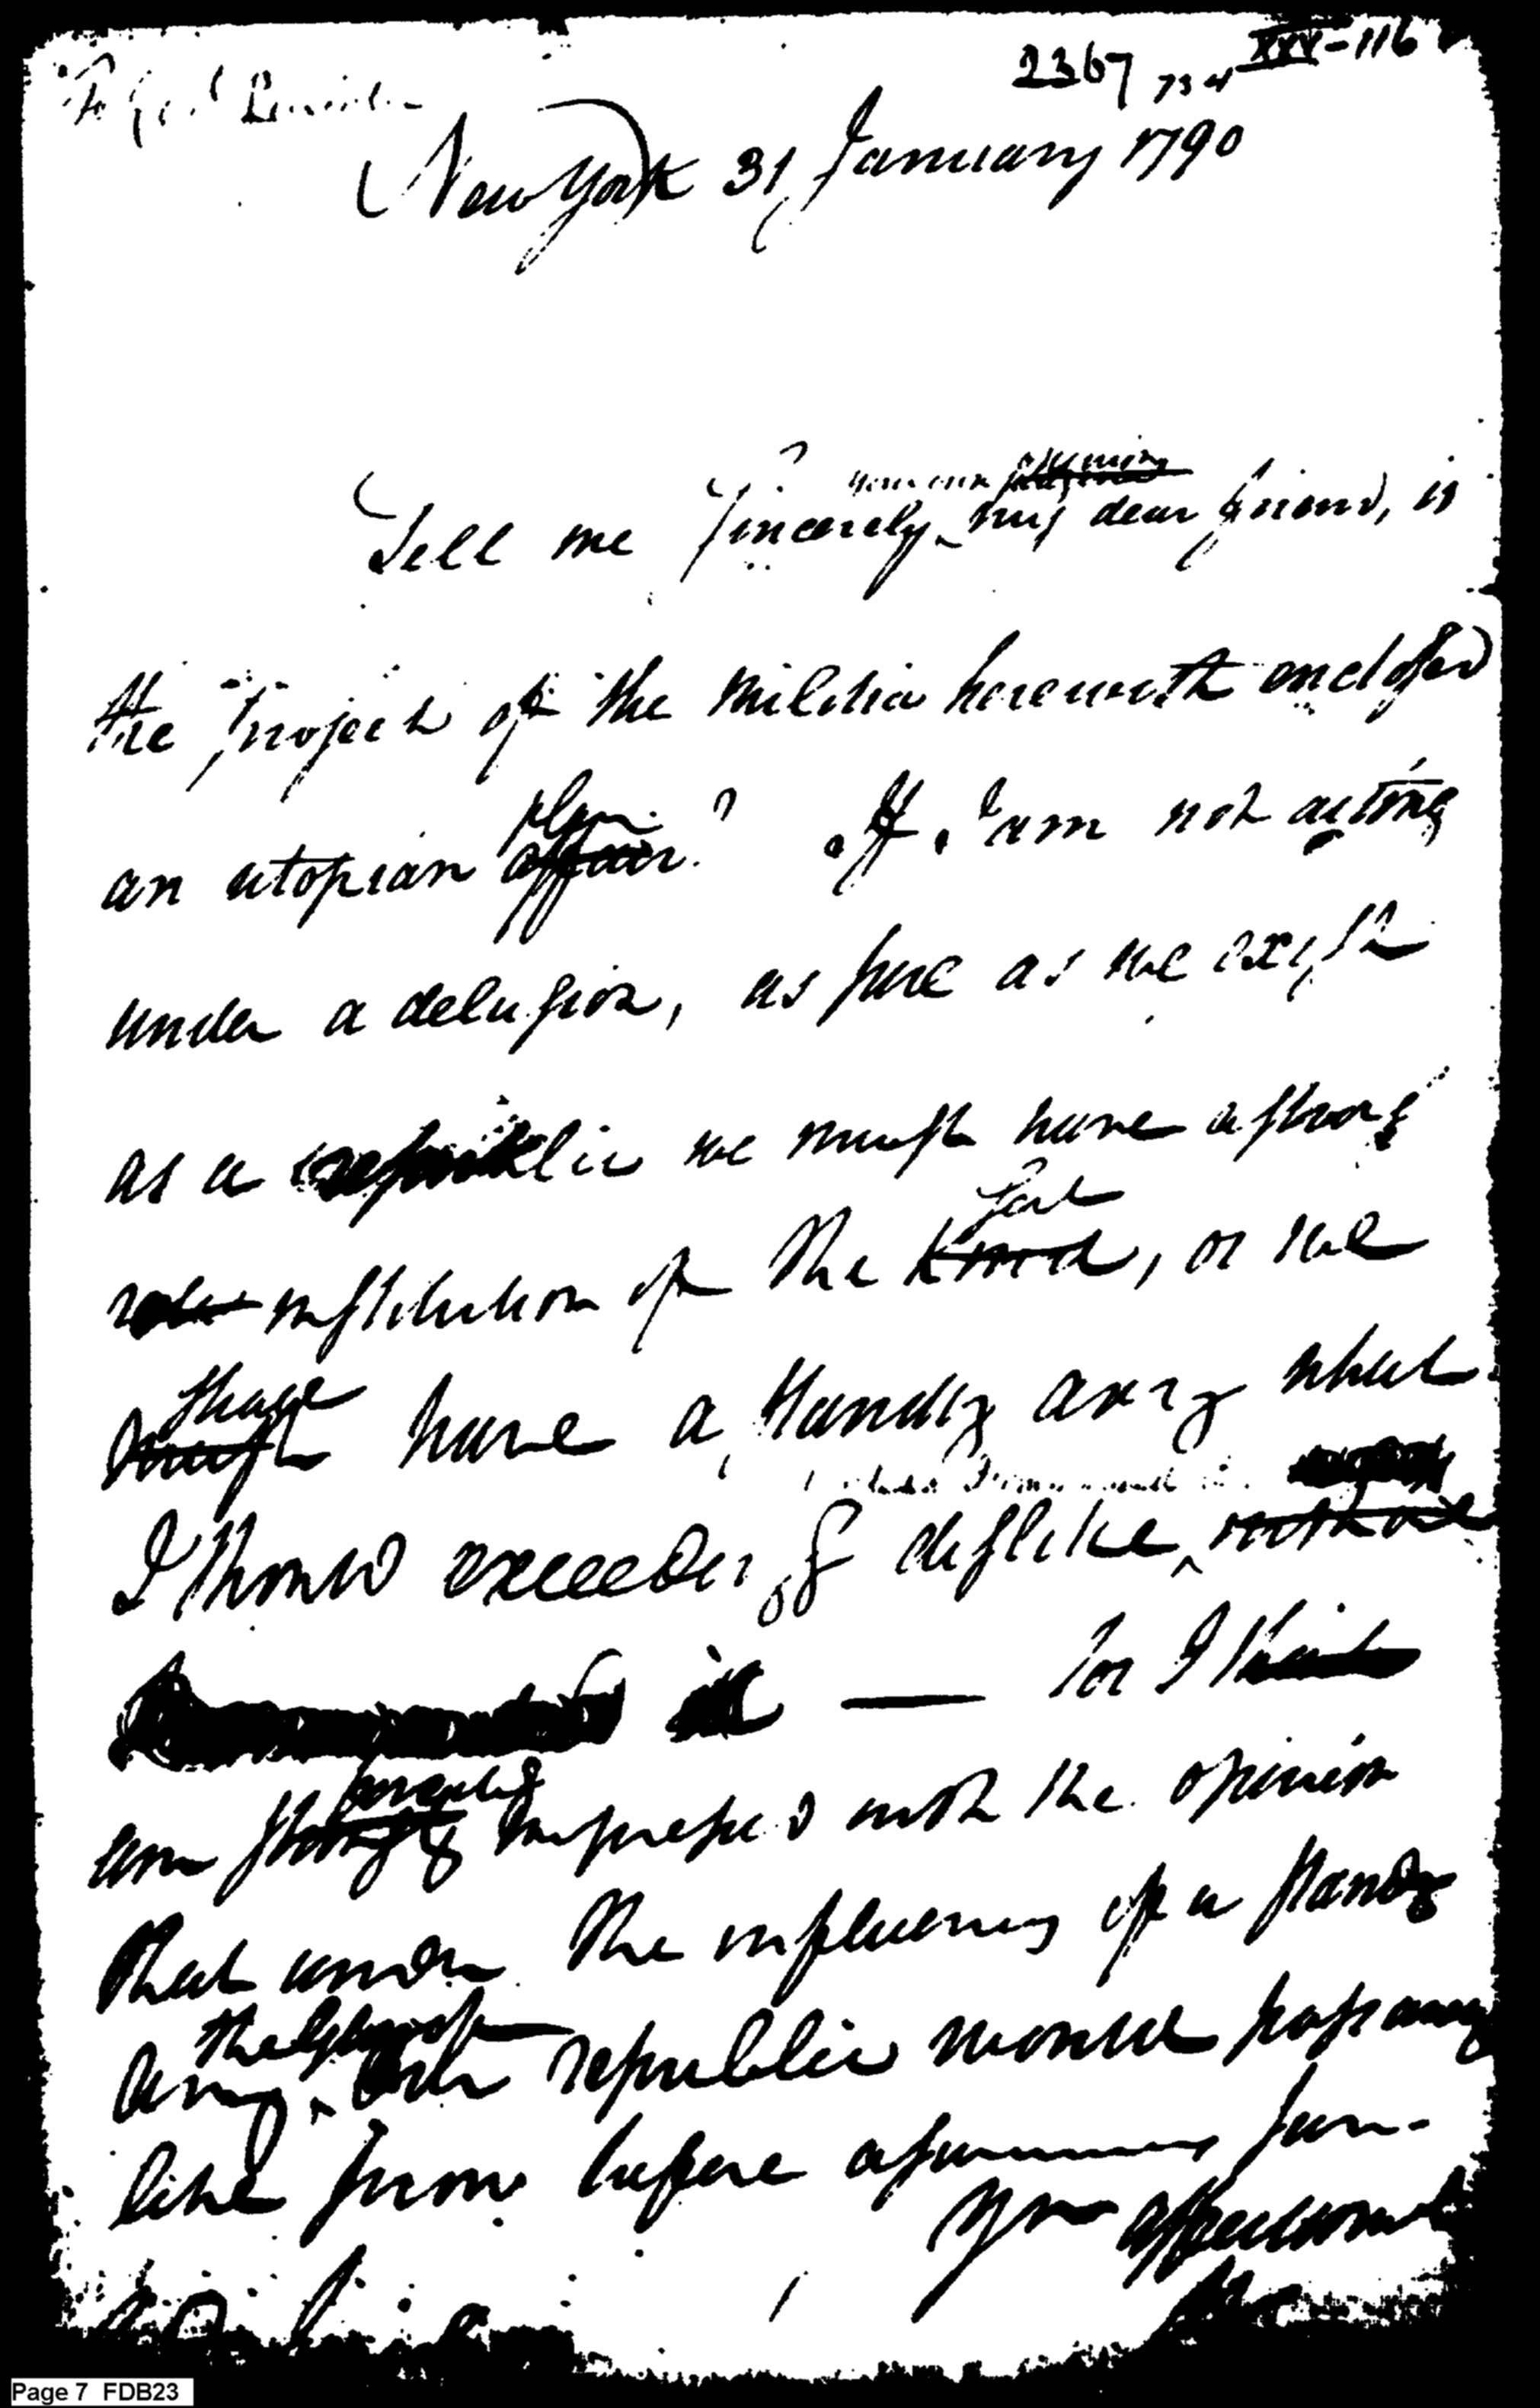 To Genl Lincoln
2367 734 XXV-116
New York 31 January 1790
your own opinion
Tell me sincerely my dear friend, is
the project of the Militia herewith enclosed
plan
an utopian affair? If I am not acting
under a delusion, as sure as we exist
as a republic we must have a strong
sort
institution of the kind, or we
shall
must have a standing army what
I should exceedingly dislike
it — for I
forcibly
am strongly impressed with the opinion
that under the influence of a standing
army republic would pass away
like snow before a summer sun.
Your affectionate
Page 7 FDB23